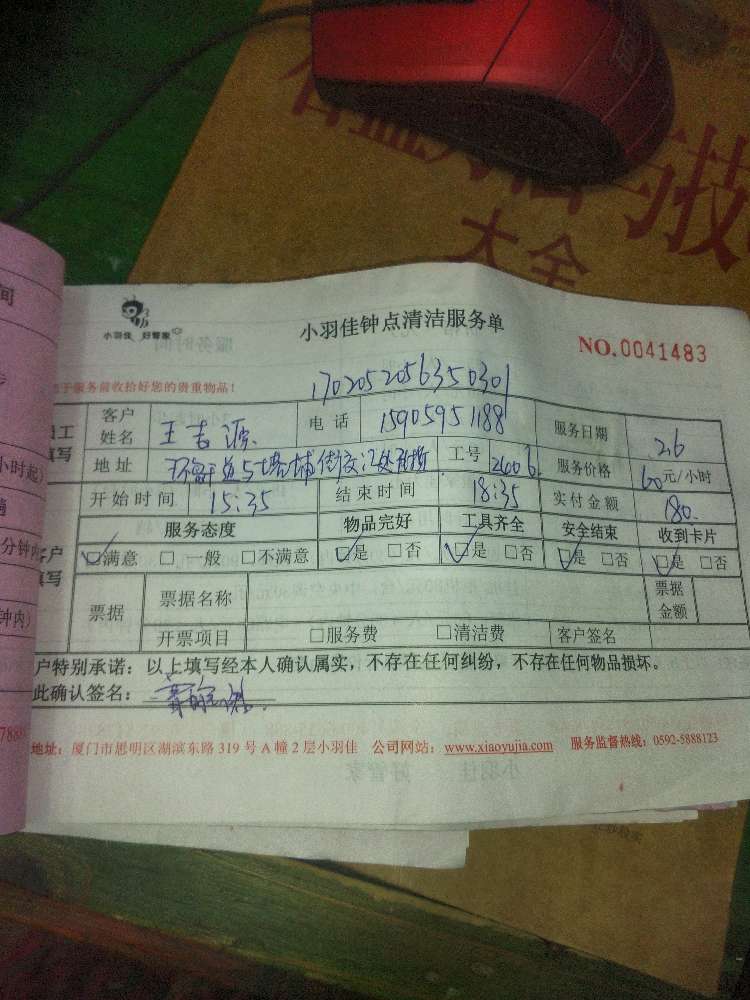 与技
大全
小羽佳 好管家
小羽佳钟点清洁服务单
NO.0041483
于服务前收拾好您的贵重物品!
1702052056350301
客户姓名 王志源 电话 15905951188 服务日期 2.6
地址 工号 2406 服务价格 60元/小时
开始时间 15:35 结束时间 18:35 实付金额 180.
服务态度 物品完好 工具齐全 安全结束 收到卡片
□满意 □一般 □不满意 □是 □否 □是 □否 □是 □否 □是 □否
票据 票据名称 票据金额
开票项目 □服务费 □清洁费 客户签名
户特别承诺:以上填写经本人确认属实,不存在任何纠纷,不存在任何物品损坏。
此确认签名:
地址:厦门市思明区湖滨东路 319 号 A 幢 2 层小羽佳 公司网站:www.xiaoyujia.com 服务监督热线:0592-5888123